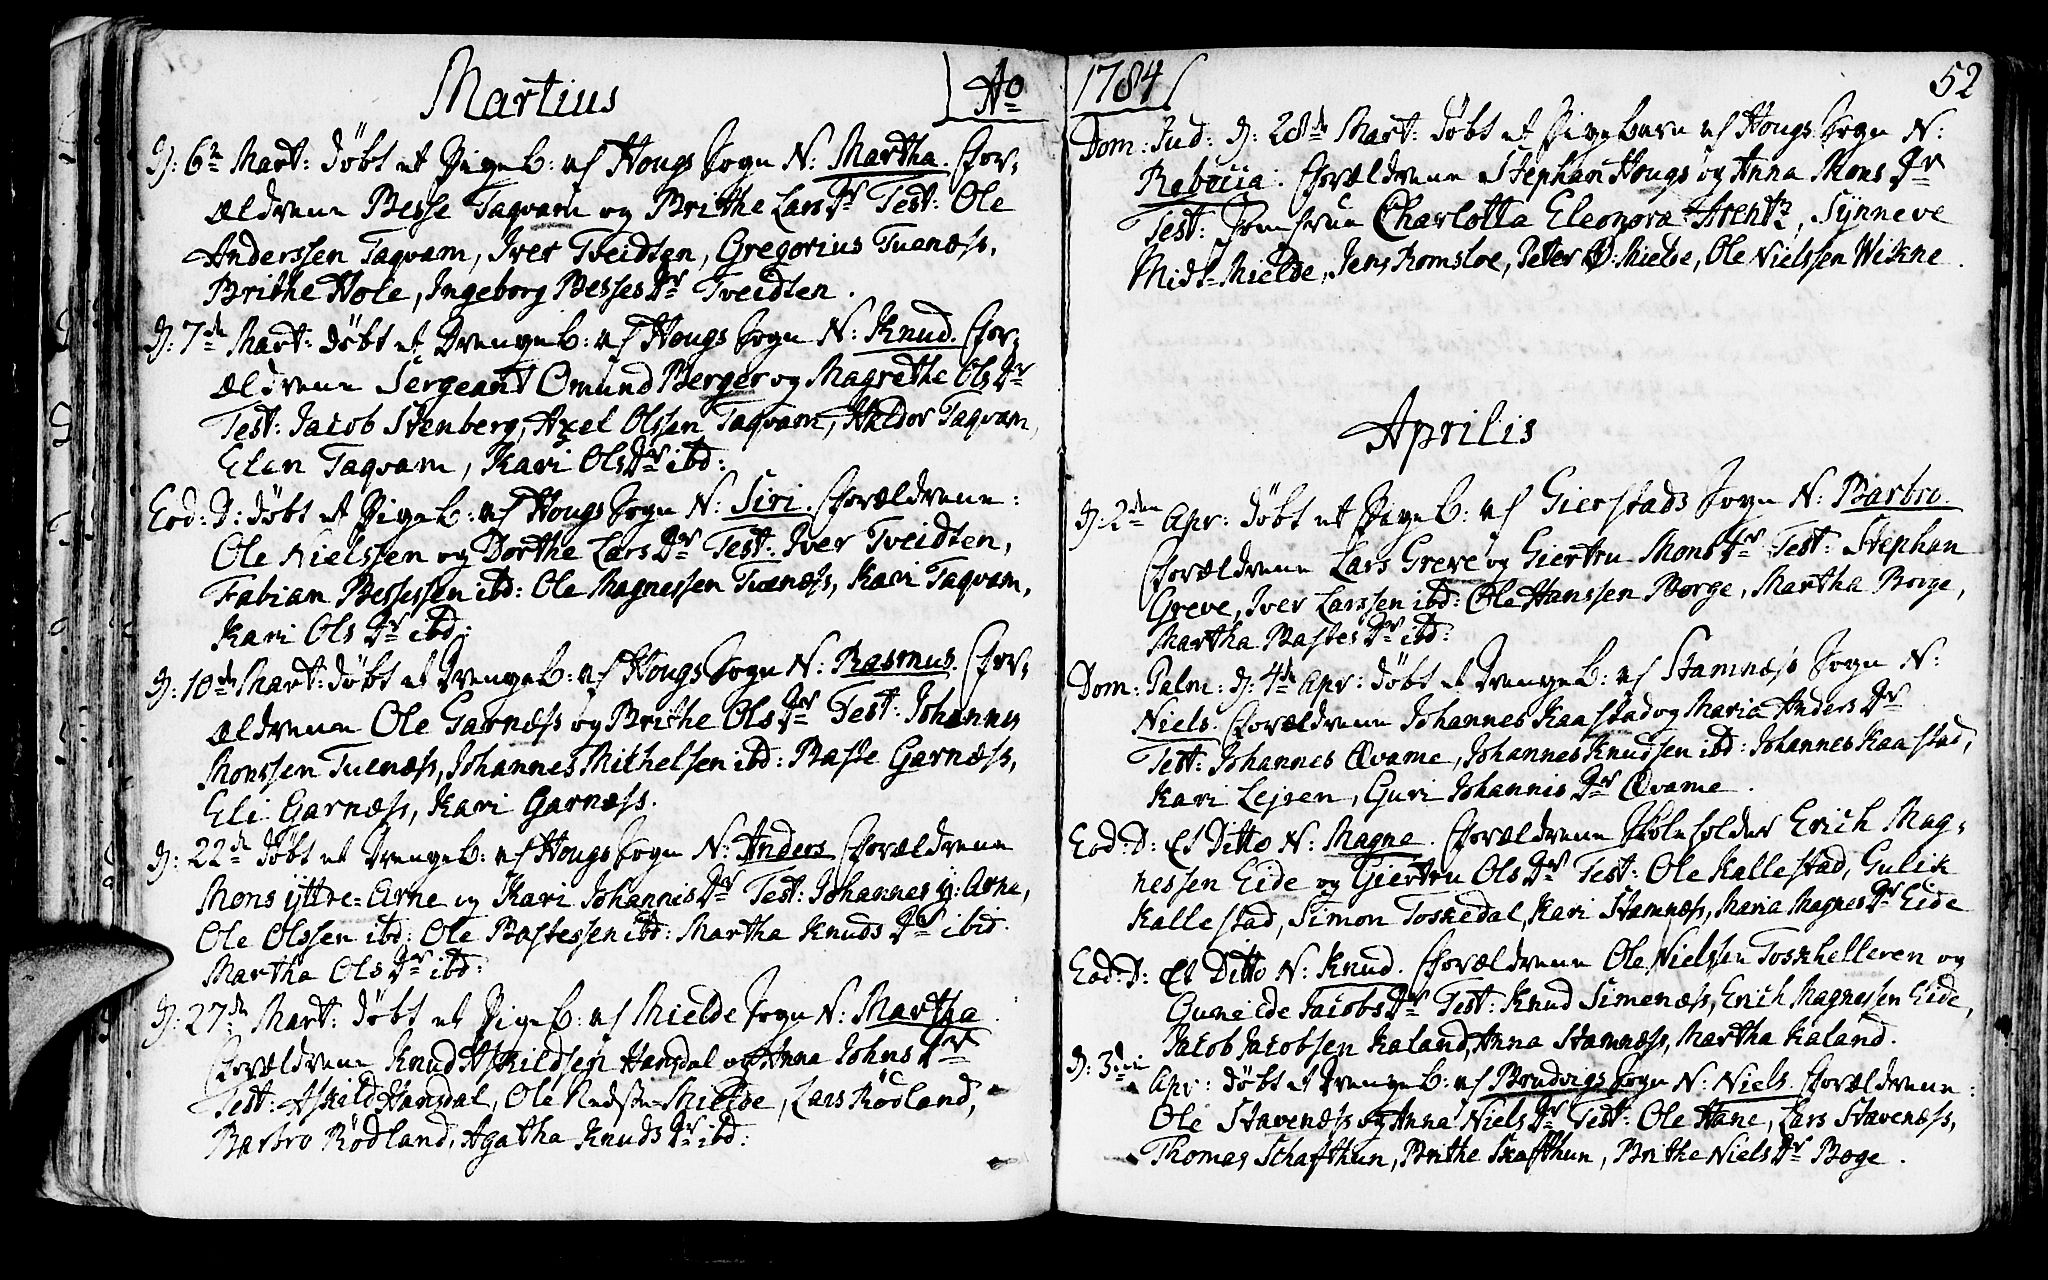 Martius
Ao
D: 6te Mart: døbt et Pigeb: af Hougs Sogn N: Martha. For-
ældrene Besse Taqvam og Brithe Lars Dr Test: Ole
Anderssen Taqvam, Iver Tveidten, Gregorius Tuenæss,
Brithe Hole, Ingeborg Besses Dr Tveidten.
D: 7de Mart: døbt et Drengeb: af Hougs Sogn N: Knud. For-
ældrene Sergeant Omund Berger og Magrethe Ols Dr
Test: Jacob Stenberg, Axel Olssen Taqvam, Haldor Taqvam,
Elen Taqvam, Kari Ols Dr ibd:
Eod: D: døbt et Pigeb: af Hougs Sogn N: Siri. Forældrene:
Ole Nielssen og Dorthe Lars Dr Test: Iver Tveidten,
Fabian Bessessen ibd: Ole Magnessen Tuenæss, Kari Taqvam,
Kari Ols Dr ibd:
D: 10de Mart: døbt et Drengeb: af Hougs Sogn N: Rasmus. For-
ældrene Ole Garnæss og Brithe Ols Dr Test: Johannes
Monssen Tuenæss, Johannes Michelsen ibd: Baste Garnæss,
Eli Garnæss, Kari Garnæss.
D: 22de døbt et Drengeb: af Hougs Sogn N: Anders Forældrene
Mons yttre-Arne og Kari Johannis Dr Test: Johannes y: Arne,
Ole Olssen ibd: Ole Bastessen ibd: Martha Knuds Dr ibid.
Martha Ols Dr ibd:
D: 27de Mart: døbt et Pigeb: af Mielde Sogn N: Martha.
Forældrene Knud Askildsen Hansdal og Anna Johns Dr
Test: Askild Hansdal, Ole Nedste-Mielde, Lars Rødland,
Barbro Rødland, Agatha Knuds Dr ibd:
1784
52
Dom: Jud: D: 28de Mart: døbt et Pigebarn af Hougs Sogn N:
Rebecia. Forældrene Stephan Hougs og Anna Mons Dr
Test: Jomfrue Charlotta Eleonora Arentz, Synneve
Midt-Mielde, Jens Romsloe, Peter Ø: Mielde, Ole Nielssen Wikne.
Aprilis
D: 2den Apr: døbt et Pigeb: af Gierstads Sogn N: Barbro.
Forældrene Lars Greve og Giertru Mons Dr Test: Stephan
Greve, Iver Larssen ibd: Ole Hanssen Borge, Martha Borge,
Martha Bastes Dr ibd:
Dom: Palm: D: 4de Apr: døbt et Drengeb: af Stamnæss Sogn N:
Niels. Forældrene Johannes Kaastad og Maria Anders Dr
Test: Johannes Øvame, Johannes Knudsen ibd: Johannes Kaastad,
Kari Lejren, Guri Johannis Dr Øvame.
Eod: D: Et Ditto N: Magne. Forældrene Skoleholder Erich Mag-
nessen Eide og Giertru Ols Dr Test: Ole Kallestad, Gulik
Kallestad, Simon Toskedal, Kari Stamnæss, Maria Magnes Dr Eide
Eod: D: Et Ditto N: Knud. Forældrene Ole Nielssen Toskhelleren og
Gunilde Jacobs Dr Test: Knud Simenæss, Erich Magnessen Eide,
Jacob Jacobsen Kaland, Anna Stamnæss, Martha Kaland.
D: 3die Apr: døbt et Drengeb: af Brudvigs Sogn N: Niels. Forældrene:
Ole Stavenæss og Anna Niels Dr Test: Ole Hane, Lars Stavenæss,
Thomas Schafthun, Brithe Skafthun, Brithe Niels Dr Boge.